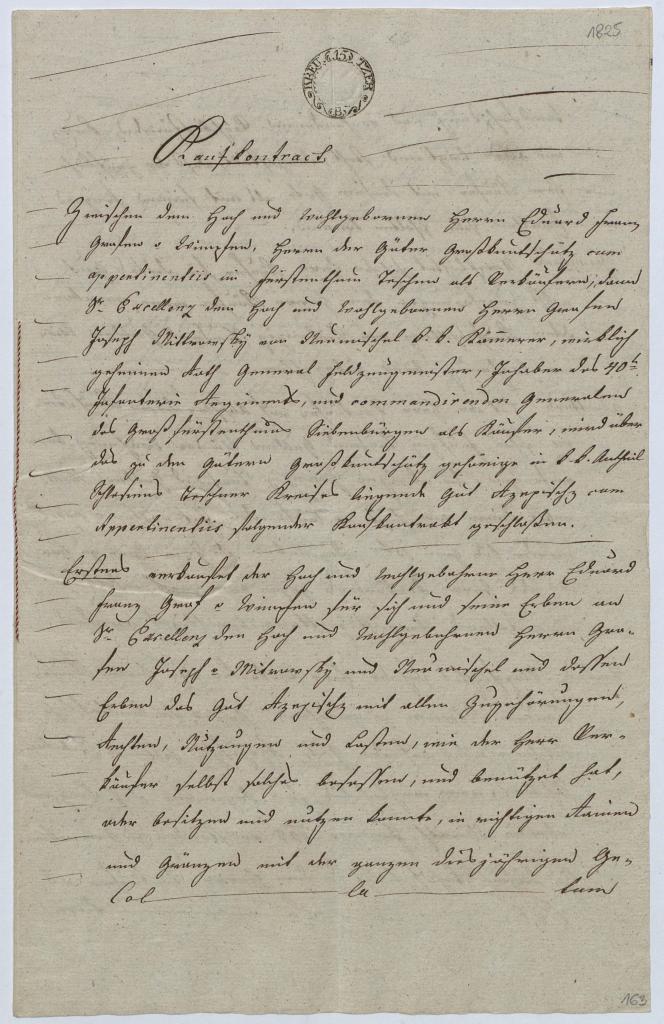 1825
KREU 15 TZER
B
Kaufkontract
Zwischen dem Hoch und Wohlgebornen Herrn Eduard Franz
Grafen v Wimpfen, Herrn der Güter Großkuntschütz cum
appertinentiis im Fürstenthum Teschen als Verkäufern, dann
Sr. Excellenz dem Hoch und Wohlgebornen Herrn Grafen
Joseph Mittrowsky von Nemischel k. k. Kämmerer, wirklich
geheimen Rath General Feldzeugmeister, Inhaber des 40t.
Infanterie Regiments, und commandirenden Generalen
des Großfürstenthums Siebenbürgen als Käufer, wird über
das zu den Gütern Großkuntschütz gehörige in k. k. Antheil
Schlesiens Teschner Kreises liegende Gut cum
Appertinentiis folgender Kaufkontrakt geschlossen.
Erstens verkaufet der Hoch und Wohlgebohrne Herr Eduard
Franz Graf v Wimpfen für sich und seine Erben an
Sr. Excellenz den Hoch und Wohlgebohrnen Herrn Gra-
fen Joseph v Mitrowsky und Nemischel und dessen
Erben das Gut mit allen Zugehörungen,
Rechten, Nutzungen und Lasten, wie der Herr Ver-
käufer selbst solches besessen, und benützet hat,
oder besitzen und nutzen konnte, in richtigen Rainen
und Gränzen mit der ganzen diesjährigen Ge-
Col la tum
163